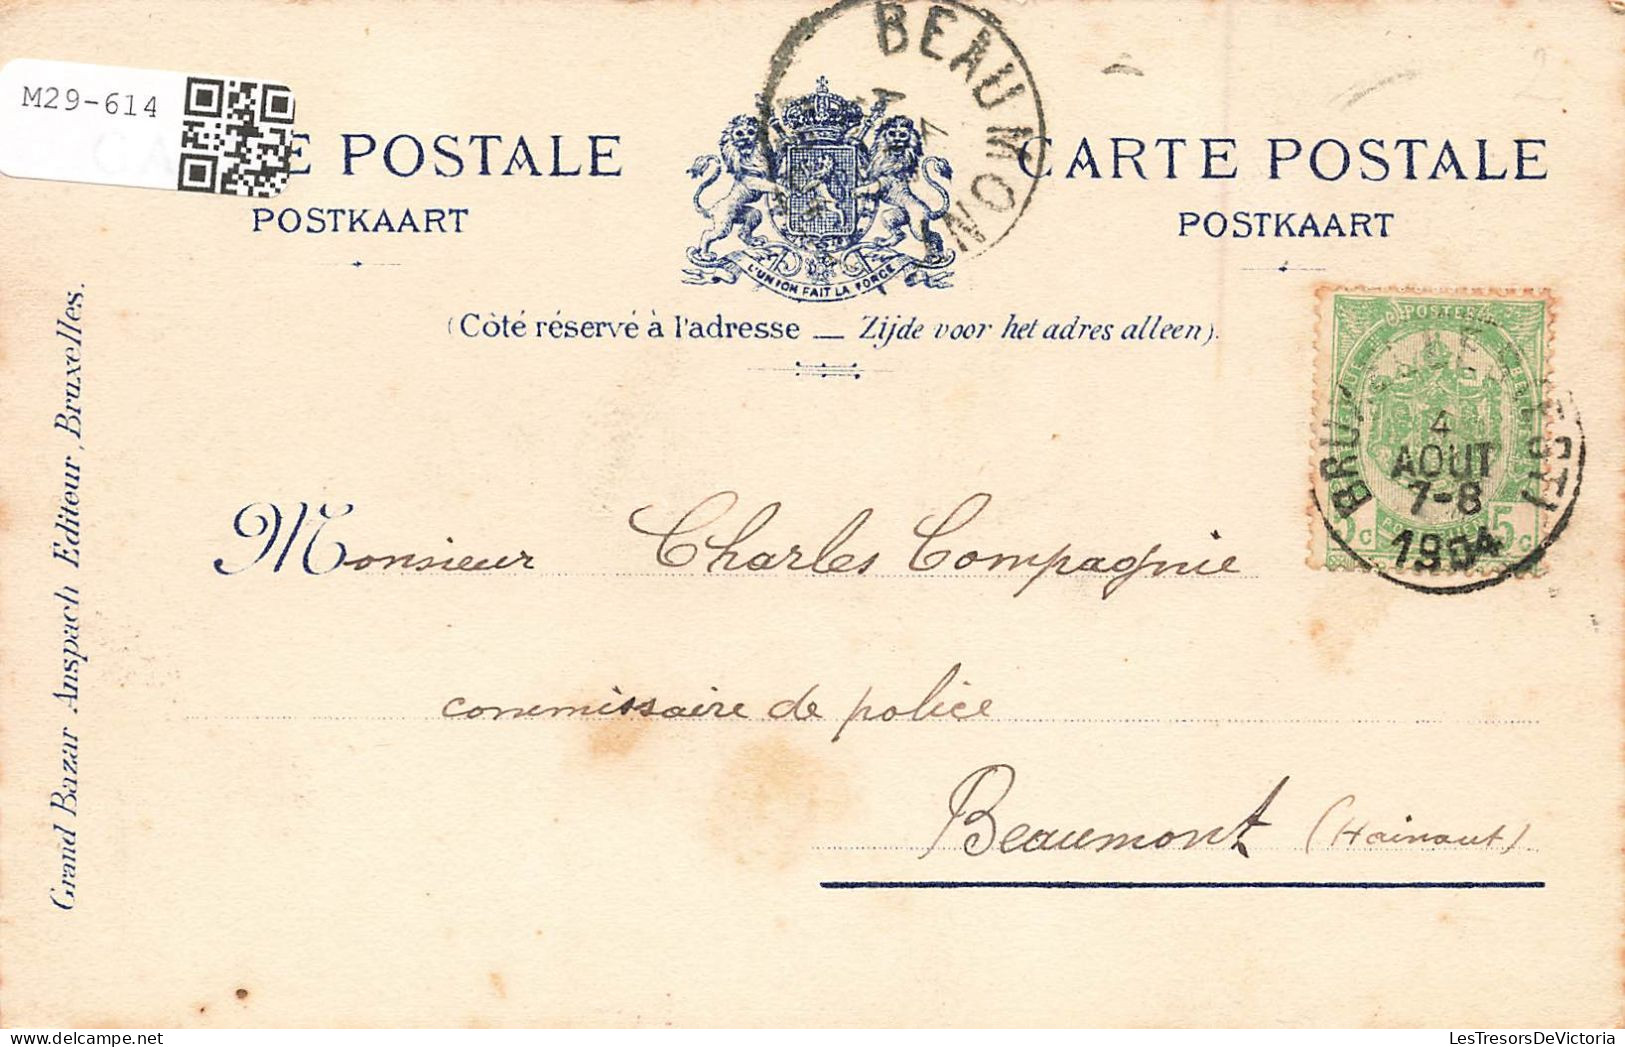 M29-614
E POSTALE
POSTKAART
CARTE POSTALE
POSTKAART
BEAUMON
L'UNION FAIT LA FORCE
(Côté réservé à l'adresse — Zijde voor het adres alleen).
Grand Bazar Anspach Editeur, Bruxelles.
POSTES
5c 5c
BRUXELLES
4
AOUT
7-8
1904
Monsieur Charles Compagnie
commissaire de police
Beaumont (Hainaut)
LesTresorsDeVictoria